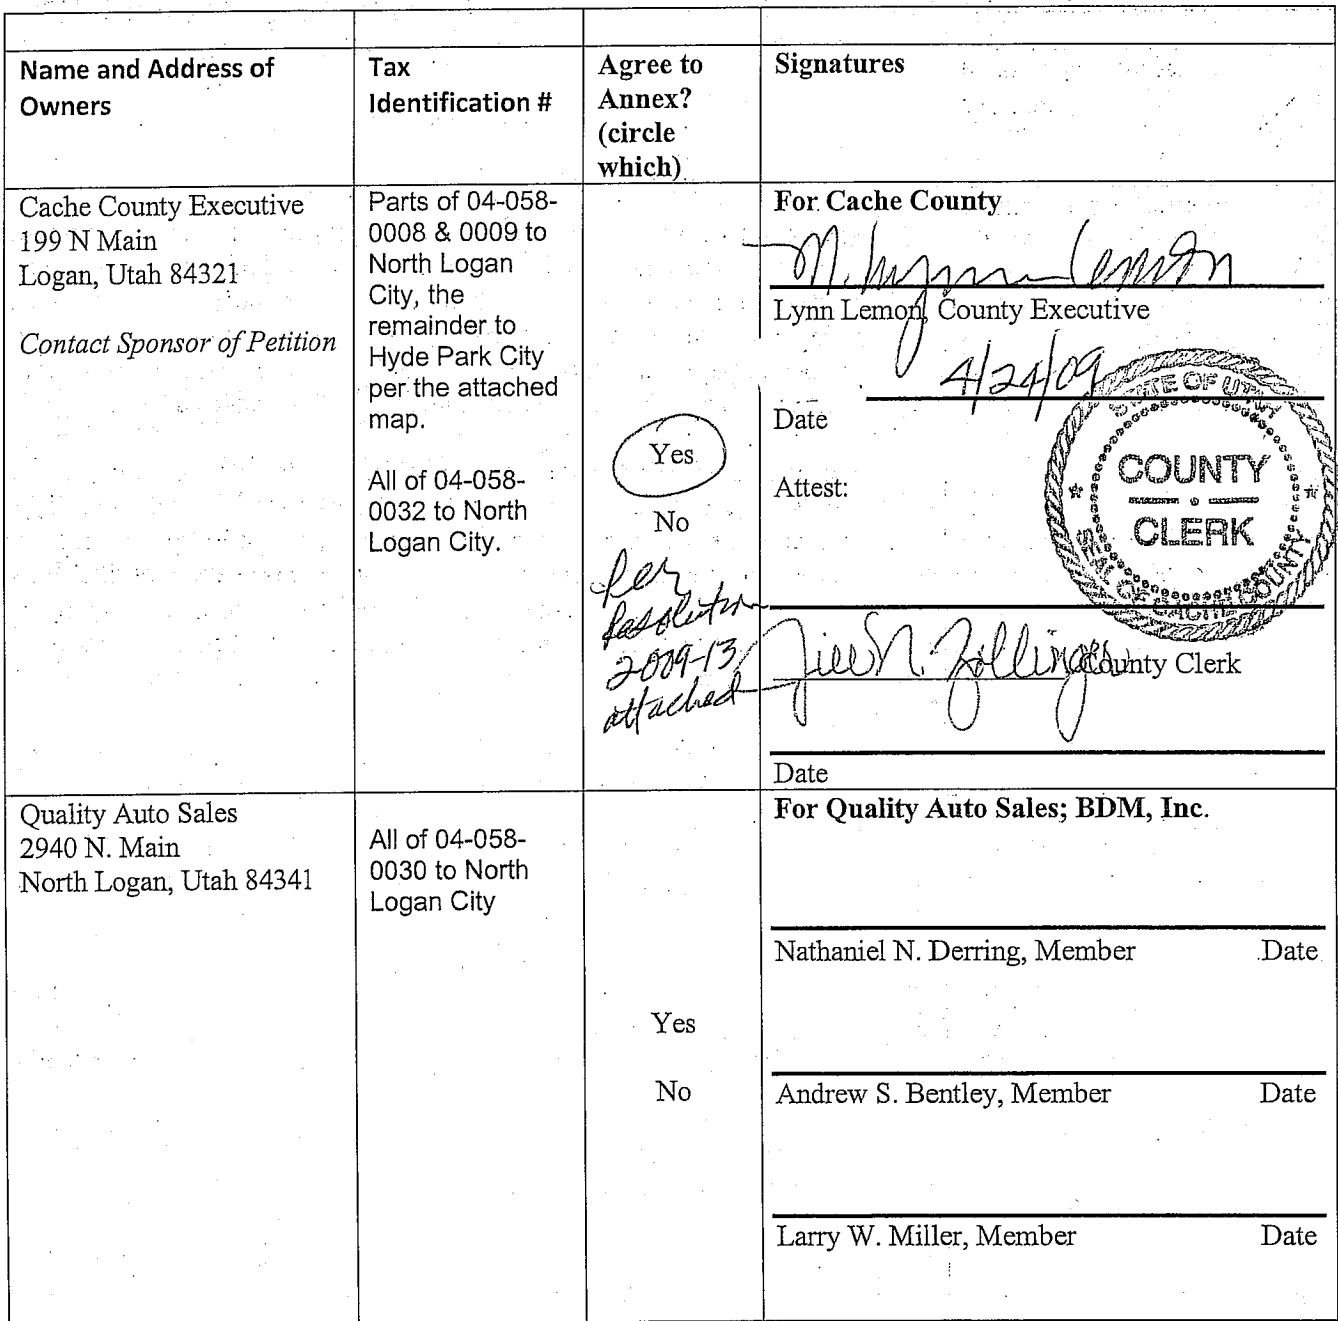 Name and Address of
Owners
Tax
Identification #
Agree to
Annex?
(circle
which)
Signatures
Cache County Executive
199 N Main
Logan, Utah 84321
Contact Sponsor of Petition
Parts of 04-058-
0008 & 0009 to
North Logan
City, the
remainder to
Hyde Park City
per the attached
map.
All of 04-058-
0032 to North
Logan City.
Yes
No
per
Resolution
2009-13
attached
For Cache County
M. Lynn Lemon
Lynn Lemon, County Executive
4/24/09
Date
Attest:
STATE OF UTAH
COUNTY
CLERK
SEAL OF CACHE COUNTY
Jill N. Zollinger
County Clerk
Date
Quality Auto Sales
2940 N. Main
North Logan, Utah 84341
All of 04-058-
0030 to North
Logan City
Yes
No
For Quality Auto Sales; BDM, Inc.
Nathaniel N. Derring, Member Date
Andrew S. Bentley, Member Date
Larry W. Miller, Member Date